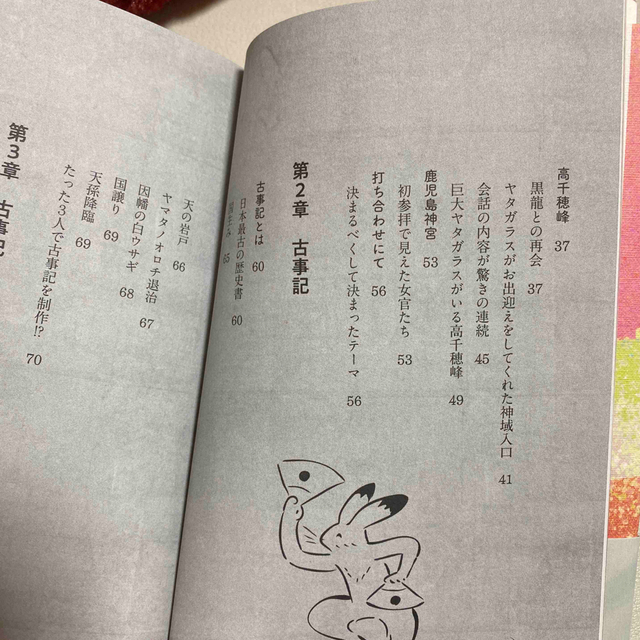 高千穂峰 37
黒龍との再会 37
ヤタガラスがお出迎えをしてくれた神域入口 41
会話の内容が驚きの連続 45
巨大ヤタガラスがいる高千穂峰 49
鹿児島神宮 53
初参拝で見えた女官たち 53
打ち合わせにて 56
決まるべくして決まったテーマ 56
第2章 古事記
古事記とは 60
日本最古の歴史書 60
65
天の岩戸 66
ヤマタノオロチ退治 67
因幡の白ウサギ 68
国譲り 69
天孫降臨 69
たった3人で古事記を制作!? 70
第3章 古事記